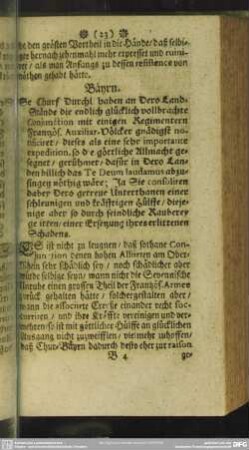 (23)
he den grösten Vortheil in die Hände / daß selbi-
ger hernach zehenmahl mehr erpresset und ruini-
ret / als man Anfangs zu dessen resistence von
nöthen gehabt hätte.
Bäyrn.
Se Churf Durchl. haben an Dero Land-
Stände die endlich glücklich vollbrachte
Conjunction mit einigen Regimentern
Frantzös. Auxiliar-Völcker gnädigst no-
tificiret / dieses als eine sehr importante
expedition, so die görtliche Allmacht ge-
segnet / gerühmet / dafür in Dero Lan-
den billich das Te Deum laudamus abzu-
singen nöthig wäre; Ja Sie consoliren
daber Dero getreue Unterthanen einer
schleunigen und kräfftigen Hülffe / dieje-
nige aber so durch feindliche Rauberey
ge itten / einer Ersetzung ihres erlittenen
Schadens.
ES ist nicht zu leugnen / daß sothane Con-
junction denen hohen Alliirten am Ober-
Rhein sehr schädlich sey / noch schädlicher aber
würde selbige seyn / wann nicht die Sevennische
Unruhe einen grossen Theil der Frantzös. Armee
zurück gehalten hätte / solchergestalten aber /
wann die associirte Creyse einander recht suc-
curriren / und ihre Kräffte vereinigen und ver-
mehren so ist mit göttlicher Hülffe an glücklichen
Ausgang nicht zuzweifflen / vielmehr zuhoffen /
daß Chur-Bäyrn dadurch desto eher zur raison
B 4 ge-